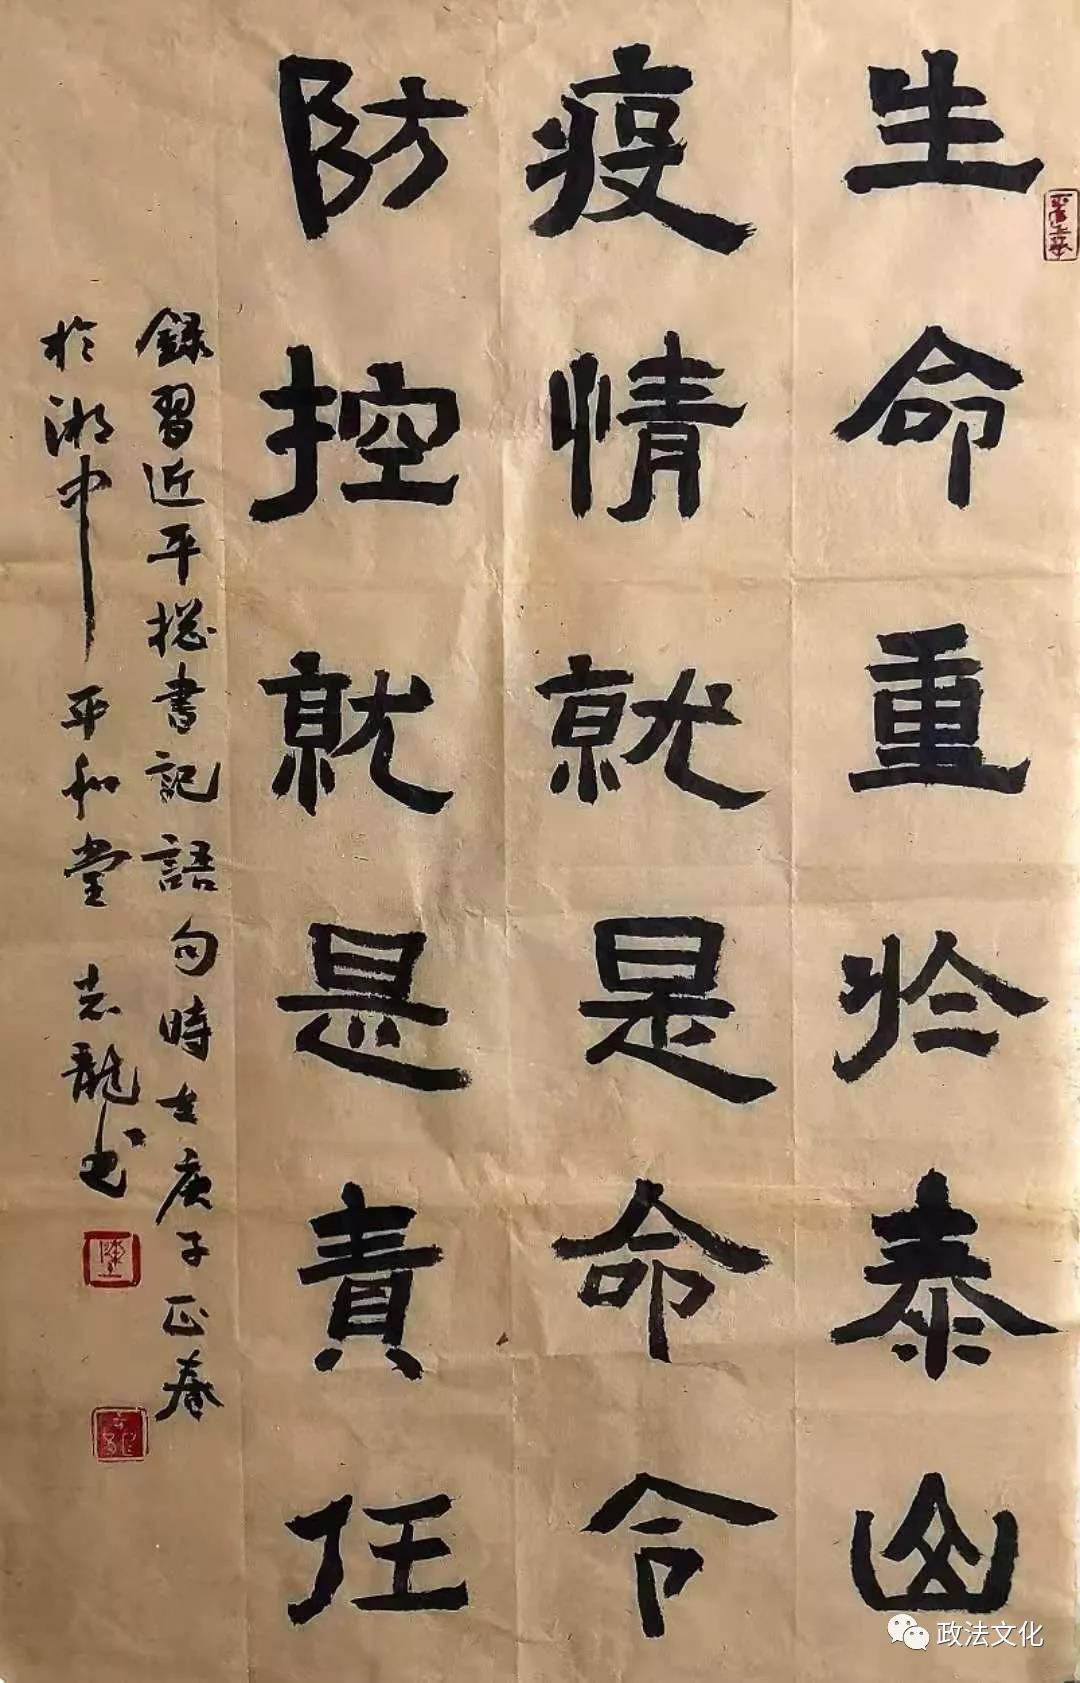 生命重於泰山
疫情就是命令
防控就是責任
錄習近平摠書記語句時在庚子正春
於湘中平和堂志龍书
政法文化